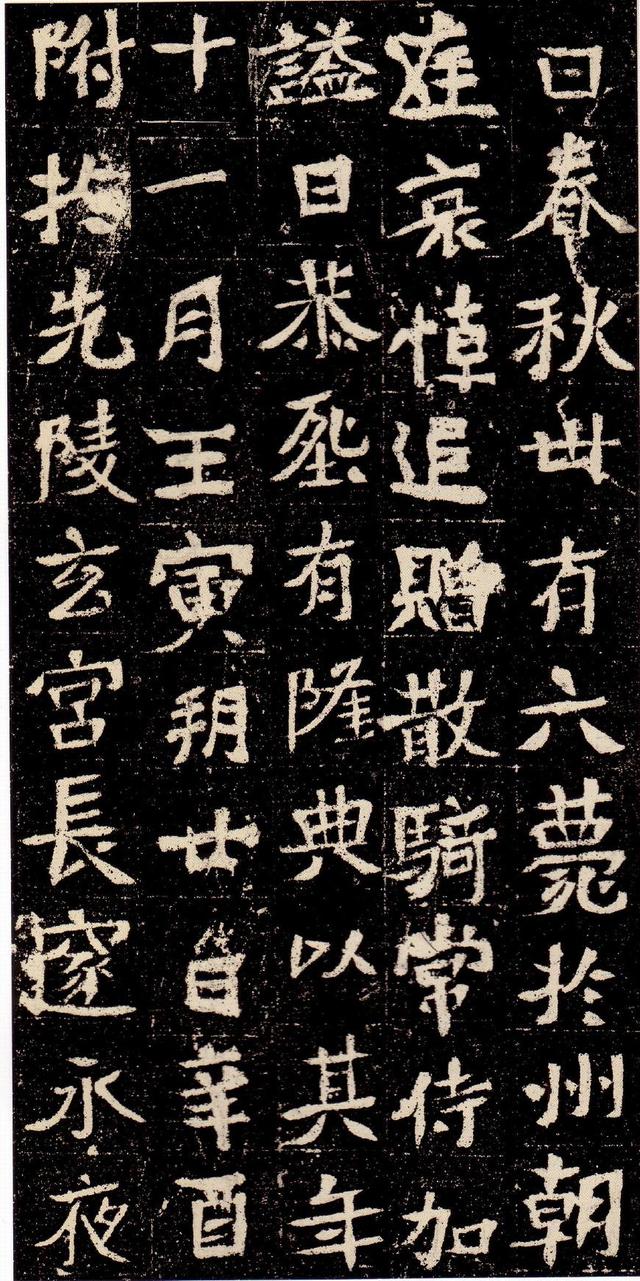 日春秋卅有六薨於州朝
廷哀悼追贈散騎常侍加
謚曰恭葬有隆典以其年
十一月壬寅朔廿日辛酉
附於先陵玄宮長邃永夜